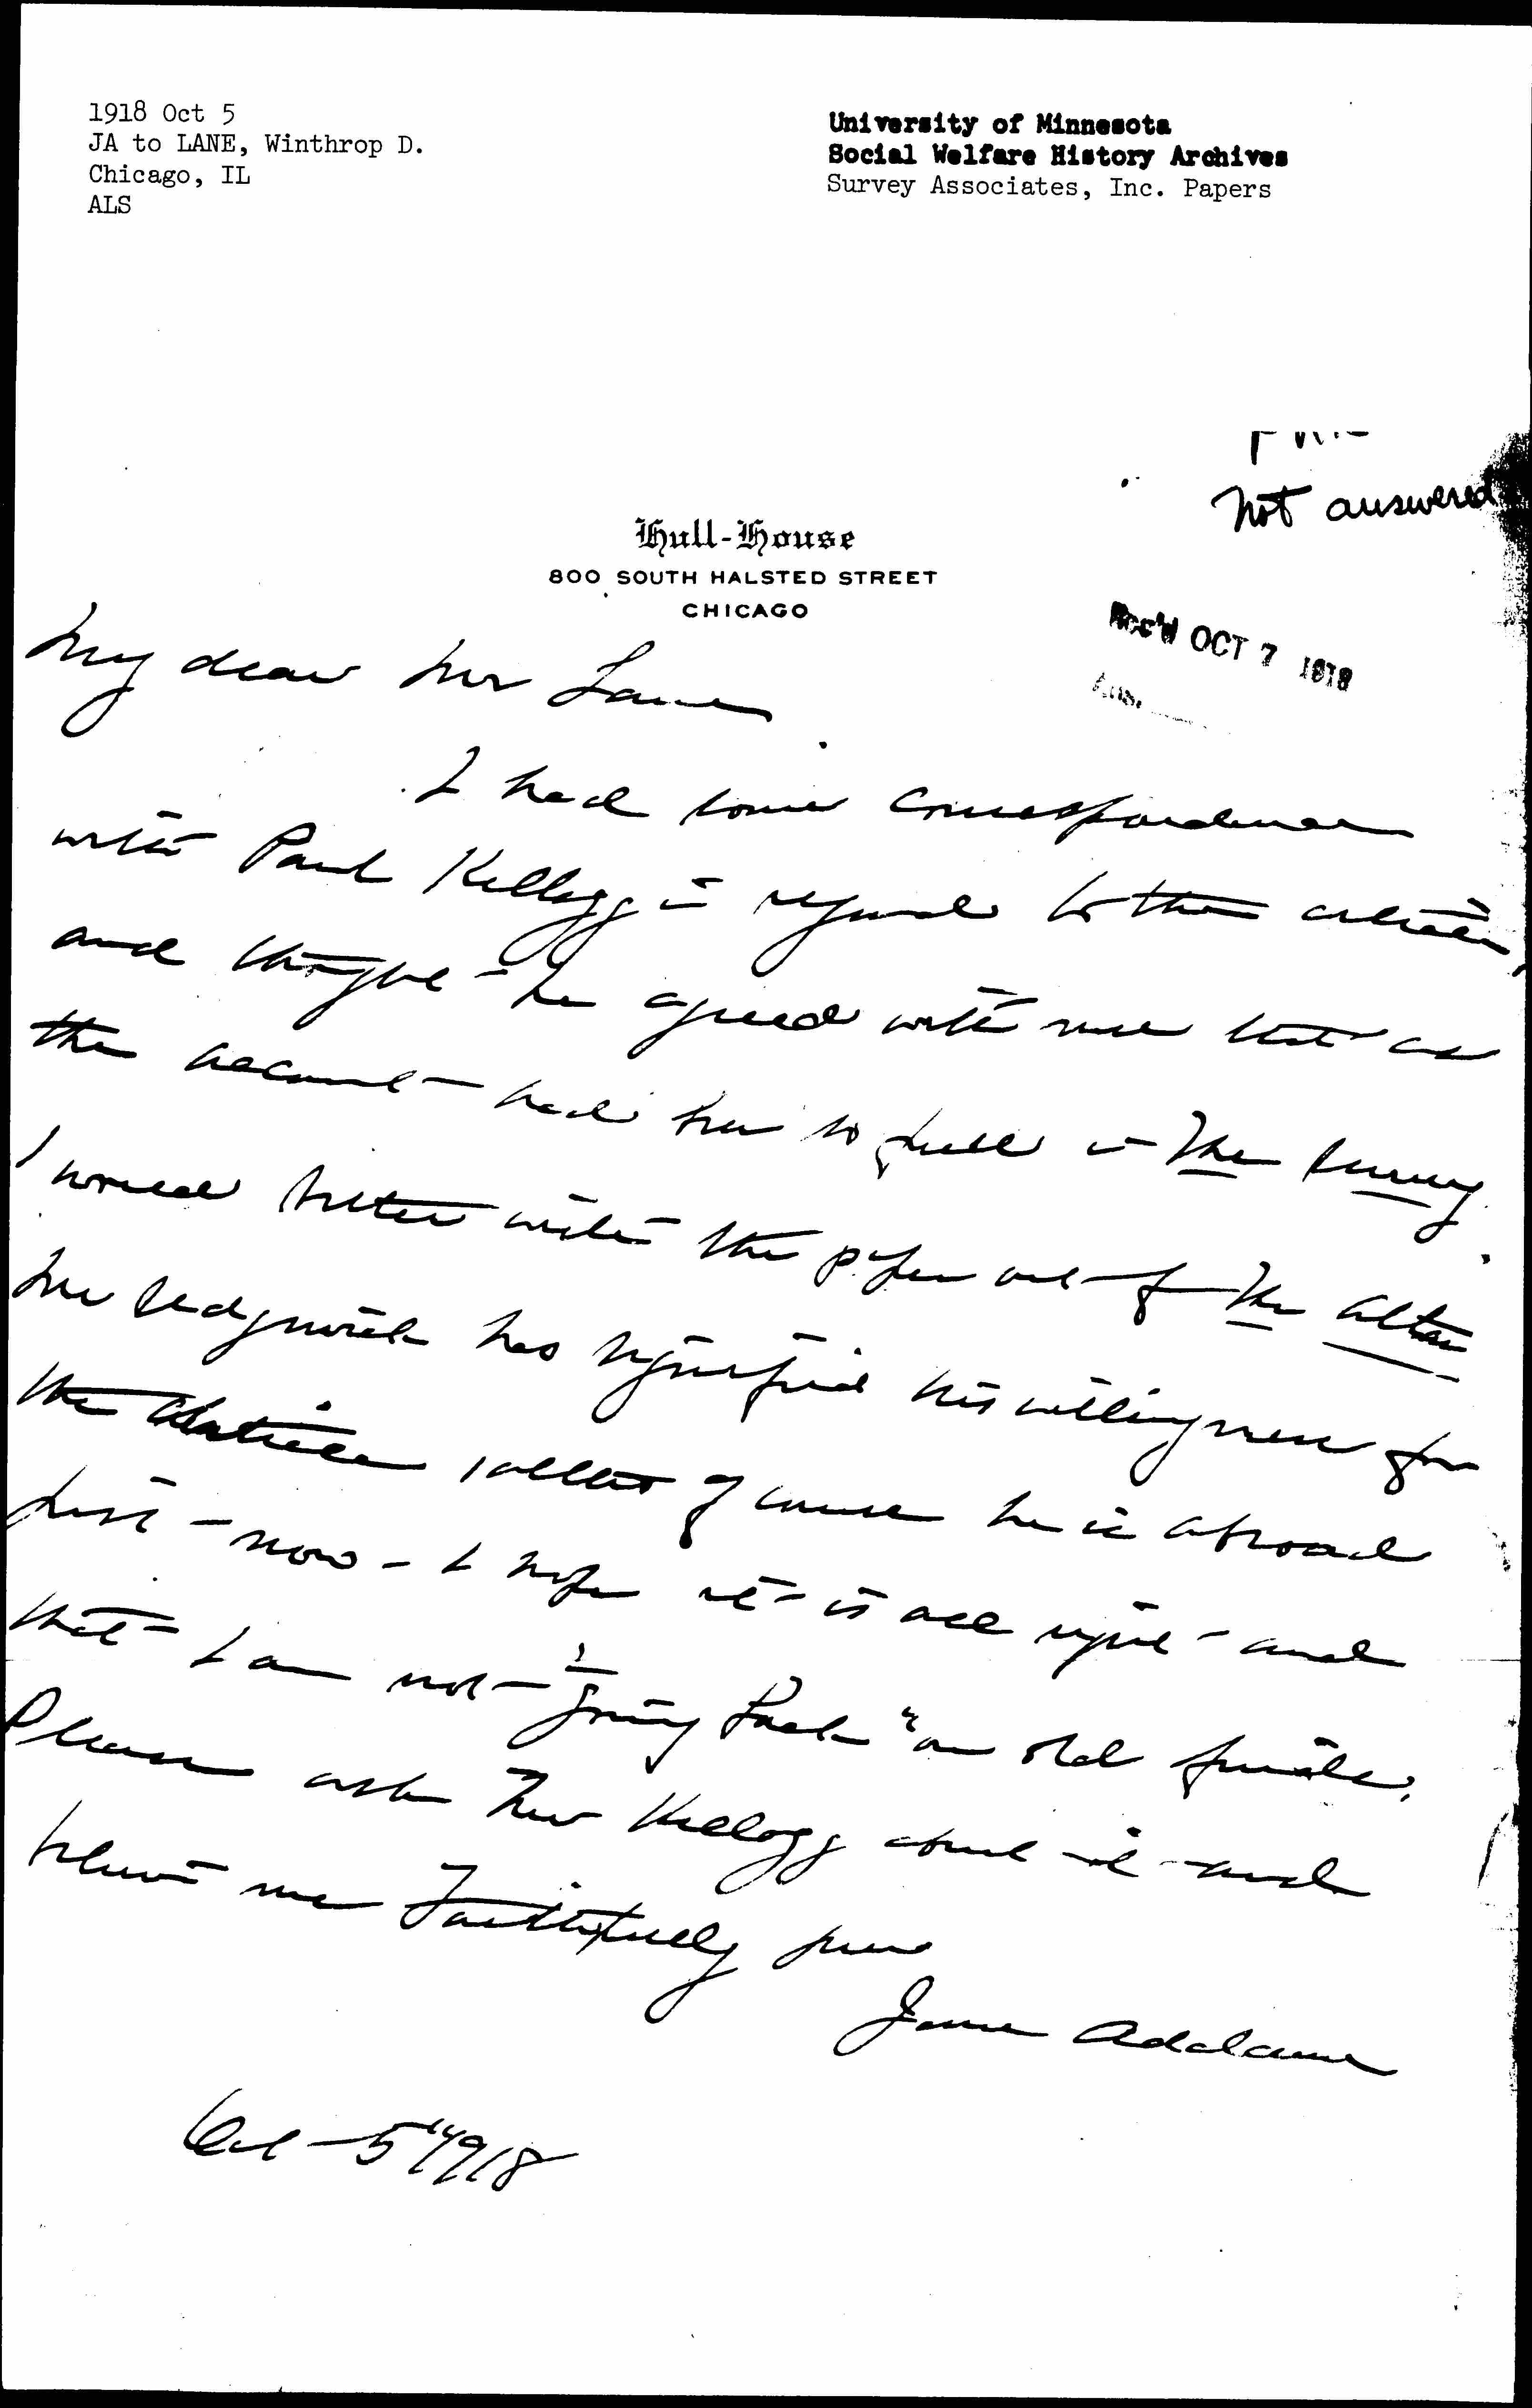 1918 Oct 5
JA to LANE, Winthrop D.
Chicago, IL
ALS
University of Minnesota
Social Welfare History Archives
Survey Associates, Inc. Papers
Not answered
Hull-House
800 SOUTH HALSTED STREET
CHICAGO
Rec'd OCT 7 1918
Ans.
My dear Mr Lane
I had some correspondence
with Paul Kellogg in regard to the article,
and thought he agreed with me that as
the account had been so full in The Survey
I would better write the paper out of The Atlan
Mr Sedgwick has signified his willingness for
the Atlantic, altho of course he is abroad
just now - I hope it is all right and
that I am not "going back" on old friends.
Please ask Mr Kellogg about it and
believe me Faithfully yours
Jane Addams
Oct 5" 1918